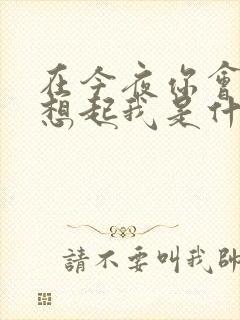 在今夜你會
想起我是什
請不要叫我帥